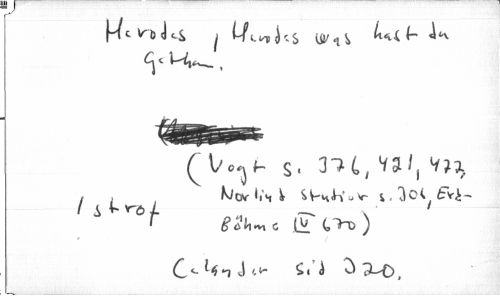 Herodes, Herodes was hast du
gethan.
(Vogt s. 376, 421, 477,
Norlind Studier s. 306, Erk-
1 strof
Böhme IV 670)
Celander sid 320.